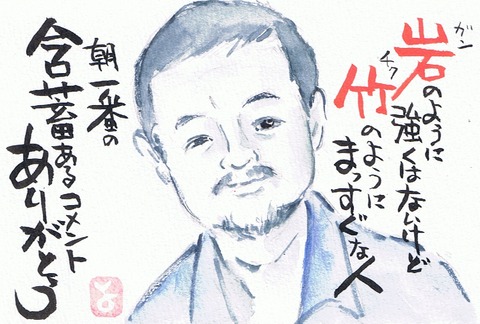 ガン
岩のように
強くはないけど
チク
竹のように
まっすぐな人
朝一番の
含蓄あるコメント
ありがとう